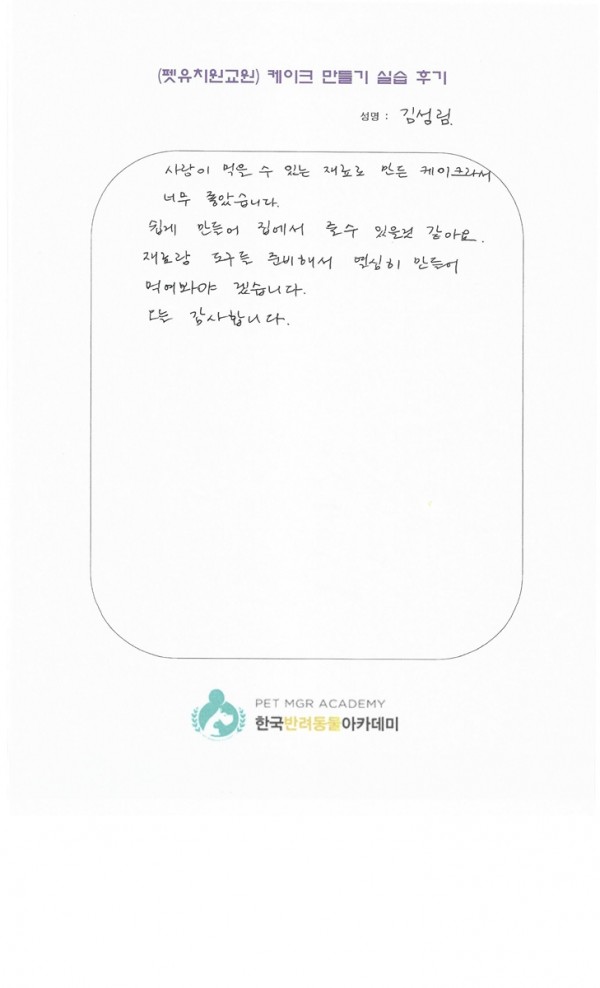 (펫유치원교원) 케이크 만들기 실습 후기
성명 : 김성림.
사람이 먹을 수 있는 재료로 만든 케이크라서
너무 좋았습니다.
쉽게 만들어 집에서 줄수 있을것 같아요.
재료랑 도구들 준비해서 열심히 만들어
먹여봐야 겠습니다.
오늘 감사합니다.
PET MGR ACADEMY
한국반려동물아카데미